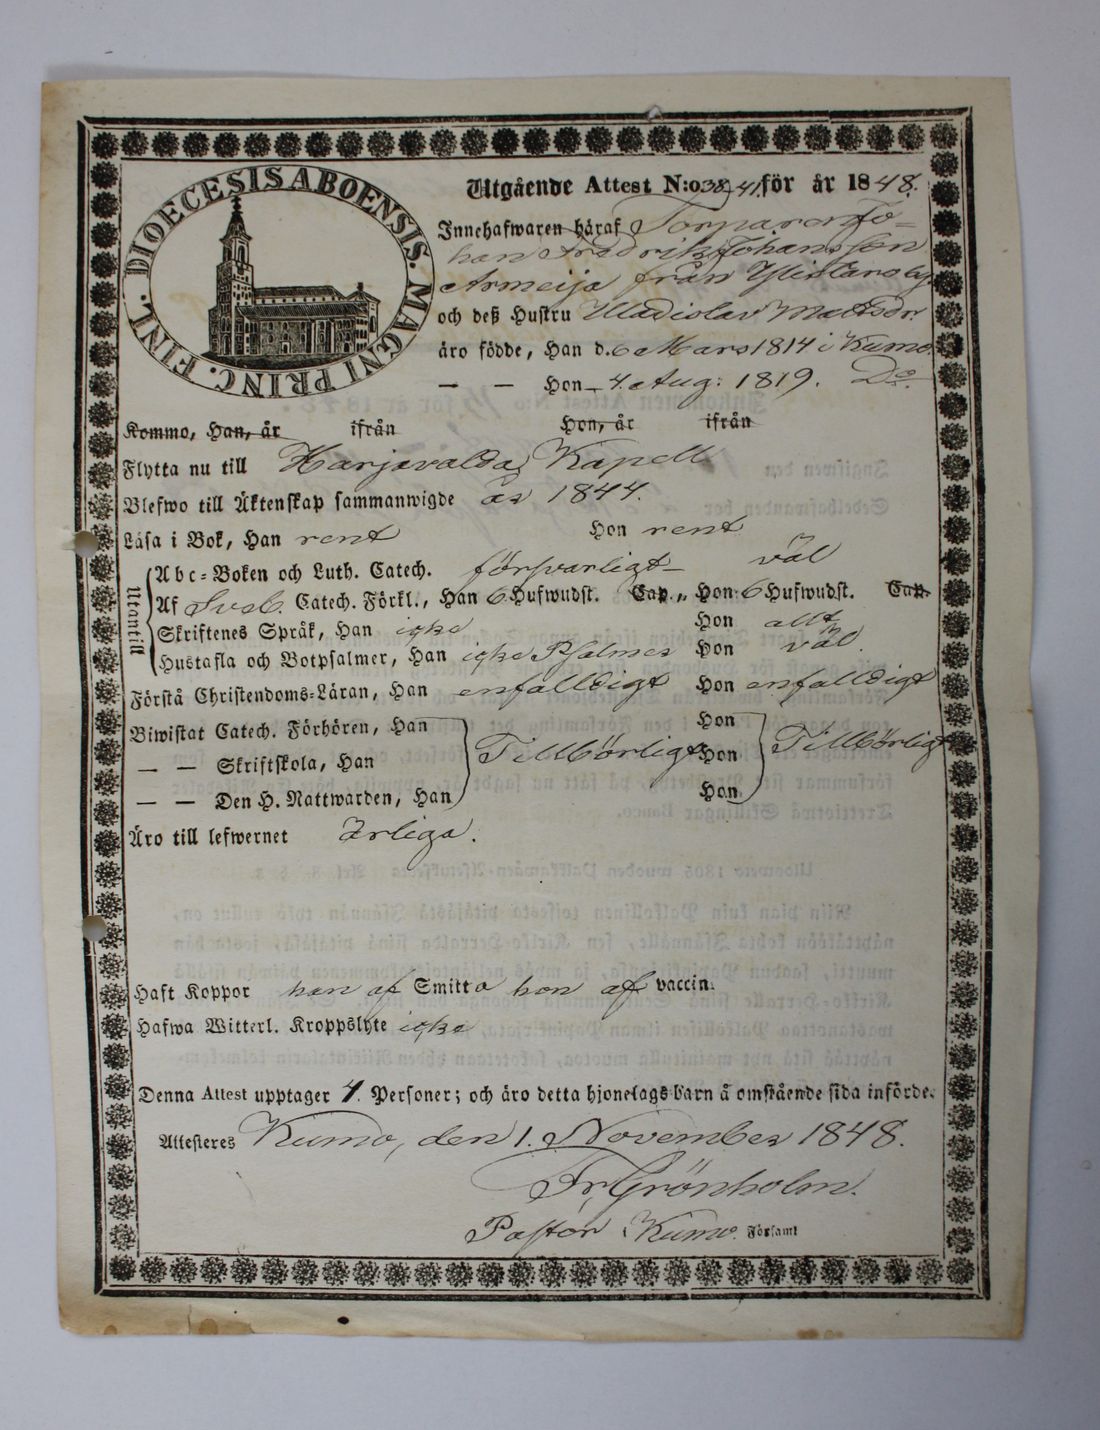 DIOECESIS ABOENSIS. MAGNI PRINC. FINL.
Utgående Attest N:o 38-41. för år 1848.
Innehafwaren häraf Torparen Jo=
han Fredrik Johansson
Armeija från Ylistaro by.
och deß Hustru Uladislav Mattsdr.
äro födde, Han d. 6 Mars 1814 i Kumo.
— — Hon 4. Aug: 1819. Do.
Kommo, Han, år ifrån Hon, år ifrån
Flytta nu till Harjavalda Kapell
Blefwo till Äktenskap sammanwigde år 1844.
Läsa i Bok, Han rent Hon rent
Utantill
Abc-Boken och Luth. Catech. försvarligt— väl
Af Sveb. Catech. Förkl., Han 6 Hufwudst. Cap. „ Hon 6 Hufwudst. Cap.
Skriftenes Språk, Han icke Hon allt
Hustafla och Botpsalmer, Han icke Psalmer Hon väl.
Förstå Christendoms-Läran, Han enfalldigt Hon enfalldigt
Biwistat Catech. Förhören, Han Hon
— — Skriftskola, Han Tillbörligt Hon Tillbörligt
— — Den H. Nattwarden, Han Hon
Äro till lefwernet Ärliga.
Haft Koppor han af Smitta hon af vaccin.
Hafwa Witterl. Kroppslyte icke
Denna Attest upptager 4. Personer; och äro detta hjonelags barn å omstående sida införde.
Attesteres Kumo, den 1. November 1848.
Fr. Grönholm.
Pastor i Kumo Församl